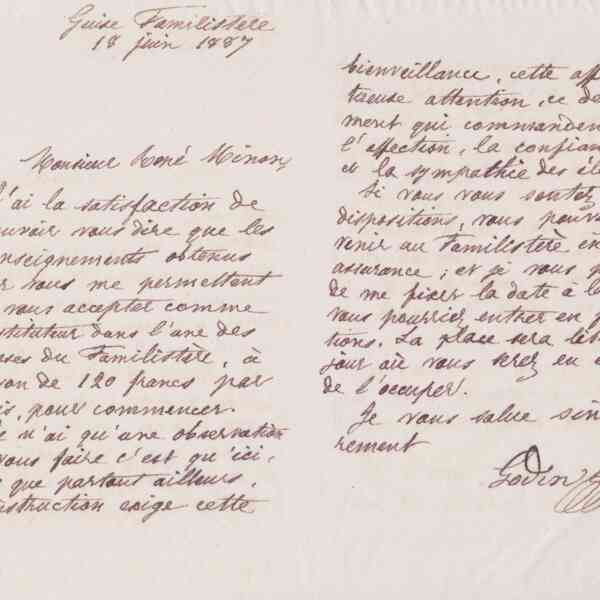 Guise Familistère
18 juin 1887
Monsieur René Minon,
J'ai la satisfaction de
ouvoir vous dire que les
enseignements obtenus
r vous me permettent
vous accepter comme
stituteur dans l'une des
ses du Familistère, à
on de 120 francs par
is, pour commencer.
e n'ai qu'une observation
vous faire c'est qu'ici,
que partout ailleurs,
struction exige cette
bienveillance, cette affe
tueuse attention, ce dé
ment qui commanden
l'affection, la confian
et la sympathie des élè
Si vous vous sentez
dispositions, vous pouv
venir au Familistère en
assurance ; et je vous p
de me fixer la date à la
vous pourriez entrer en f
tions. La place sera lib
jour où vous serez en
de l'occuper.
Je vous salue sin
rement
Godin